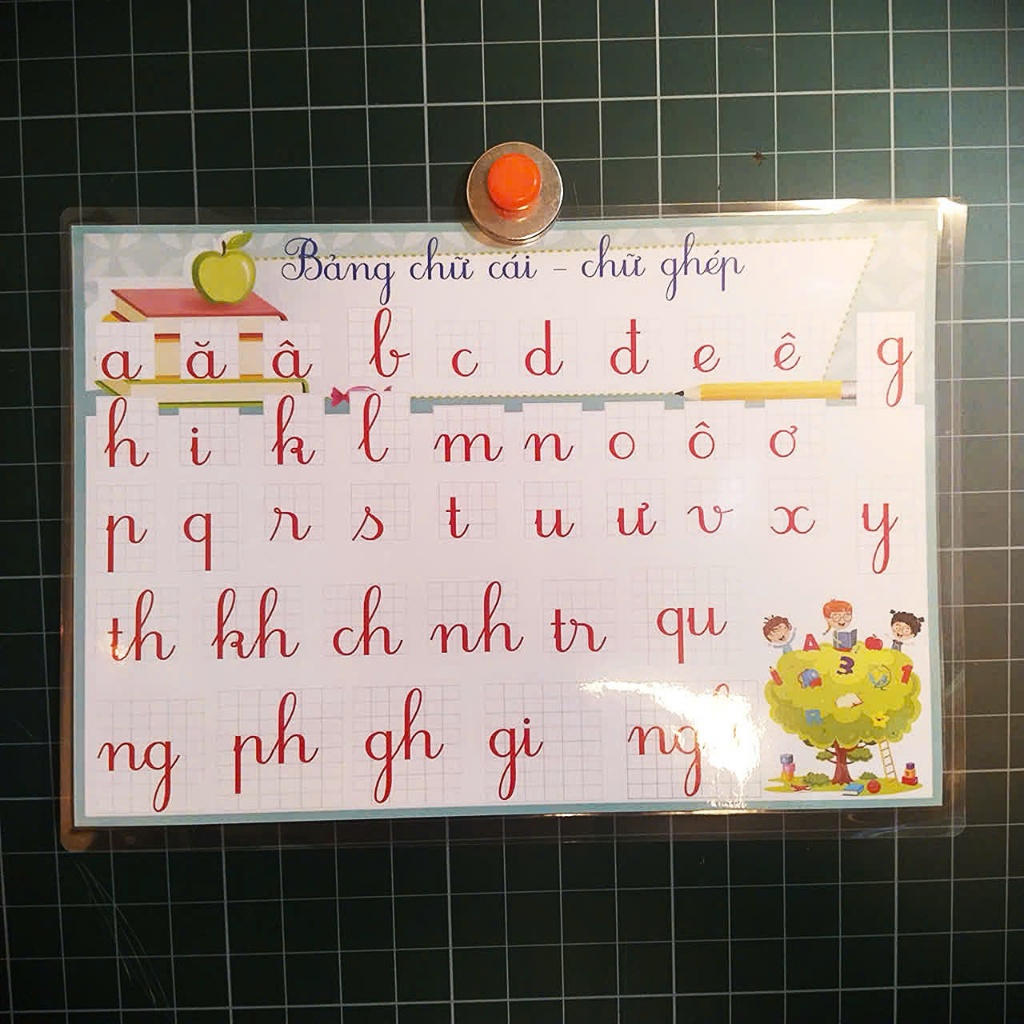 Bảng chữ cái - chữ ghép
a ă â b c d đ e ê g
h i k l m n o ô ơ
p q r s t u ư v x y
th kh ch nh tr qu
A
3 1
ng ph gh gi